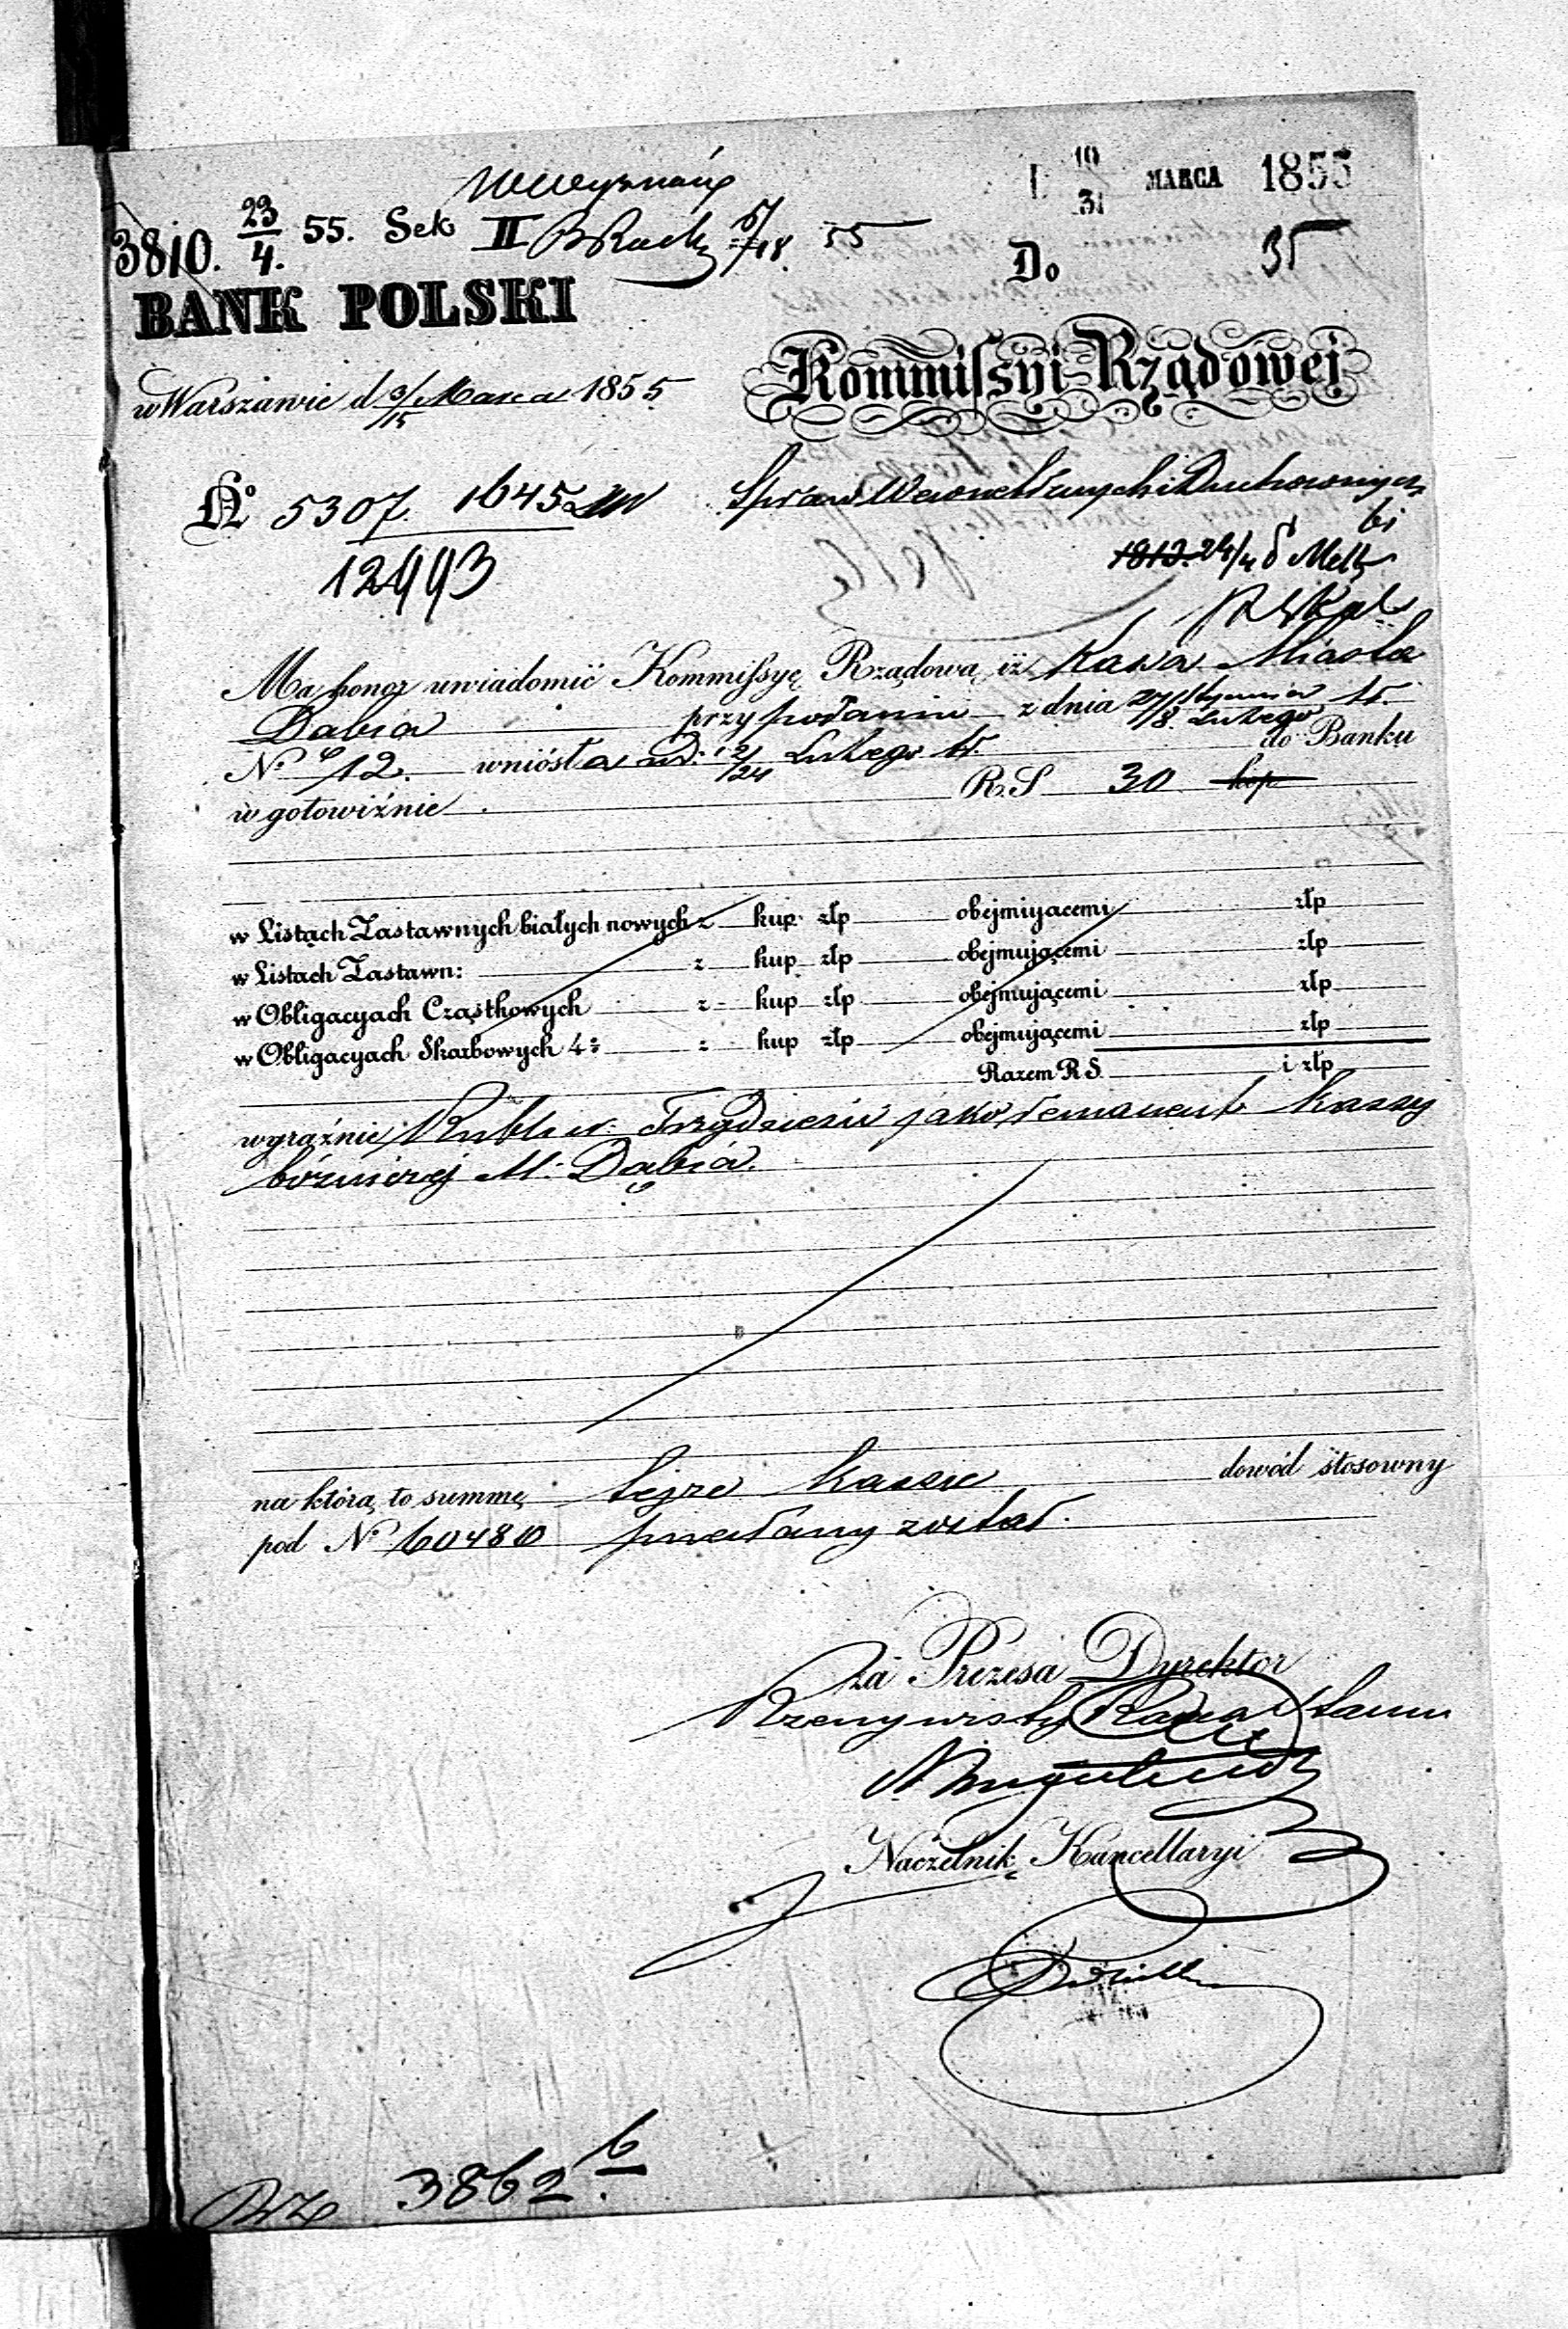 19/31 MARCA 1855
3810. 23/4. 55. Sek II 5/18. 55
Do
35
BANK POLSKI
Kommissyi Rządowej
w Warszawie d 3/15 Marca 1855.
Spraw Wewnetrznych i Duchownych
No 5307. 1645
12993
24/4
Ma honor uwiadomić Kommissyę Rządową, iż Kassa Miasta
Dabia przy podaniu z dnia 27 Stycznia/8 Lutego t.r.
No 12. wniósła d: 12/24 Lutego t.r. do Banku
w gotowiźnie R.S 30 kop
w Listach Zastawnych białych nowych z kup. złp obejmującemi złp
w Listach Zastawn: z kup złp obejmującemi złp
w Obligacyach Cząstkowych z kup złp obejmującemi złp
w Obligacyach Skarbowych 4% z kup złp obejmującemi złp
Razem R S. i złp
wyraźnie Rubli sr. Trzydzieści jako remanent kassy
bóżniczej M: Dąbia.
na którą to summę tejże kassie dowód stosowny
pod No 60480 przesłany został.
za Prezesa Dyrektor
Rzeczywisty Radca Stanu
Naczelnik Kancellaryi
3862